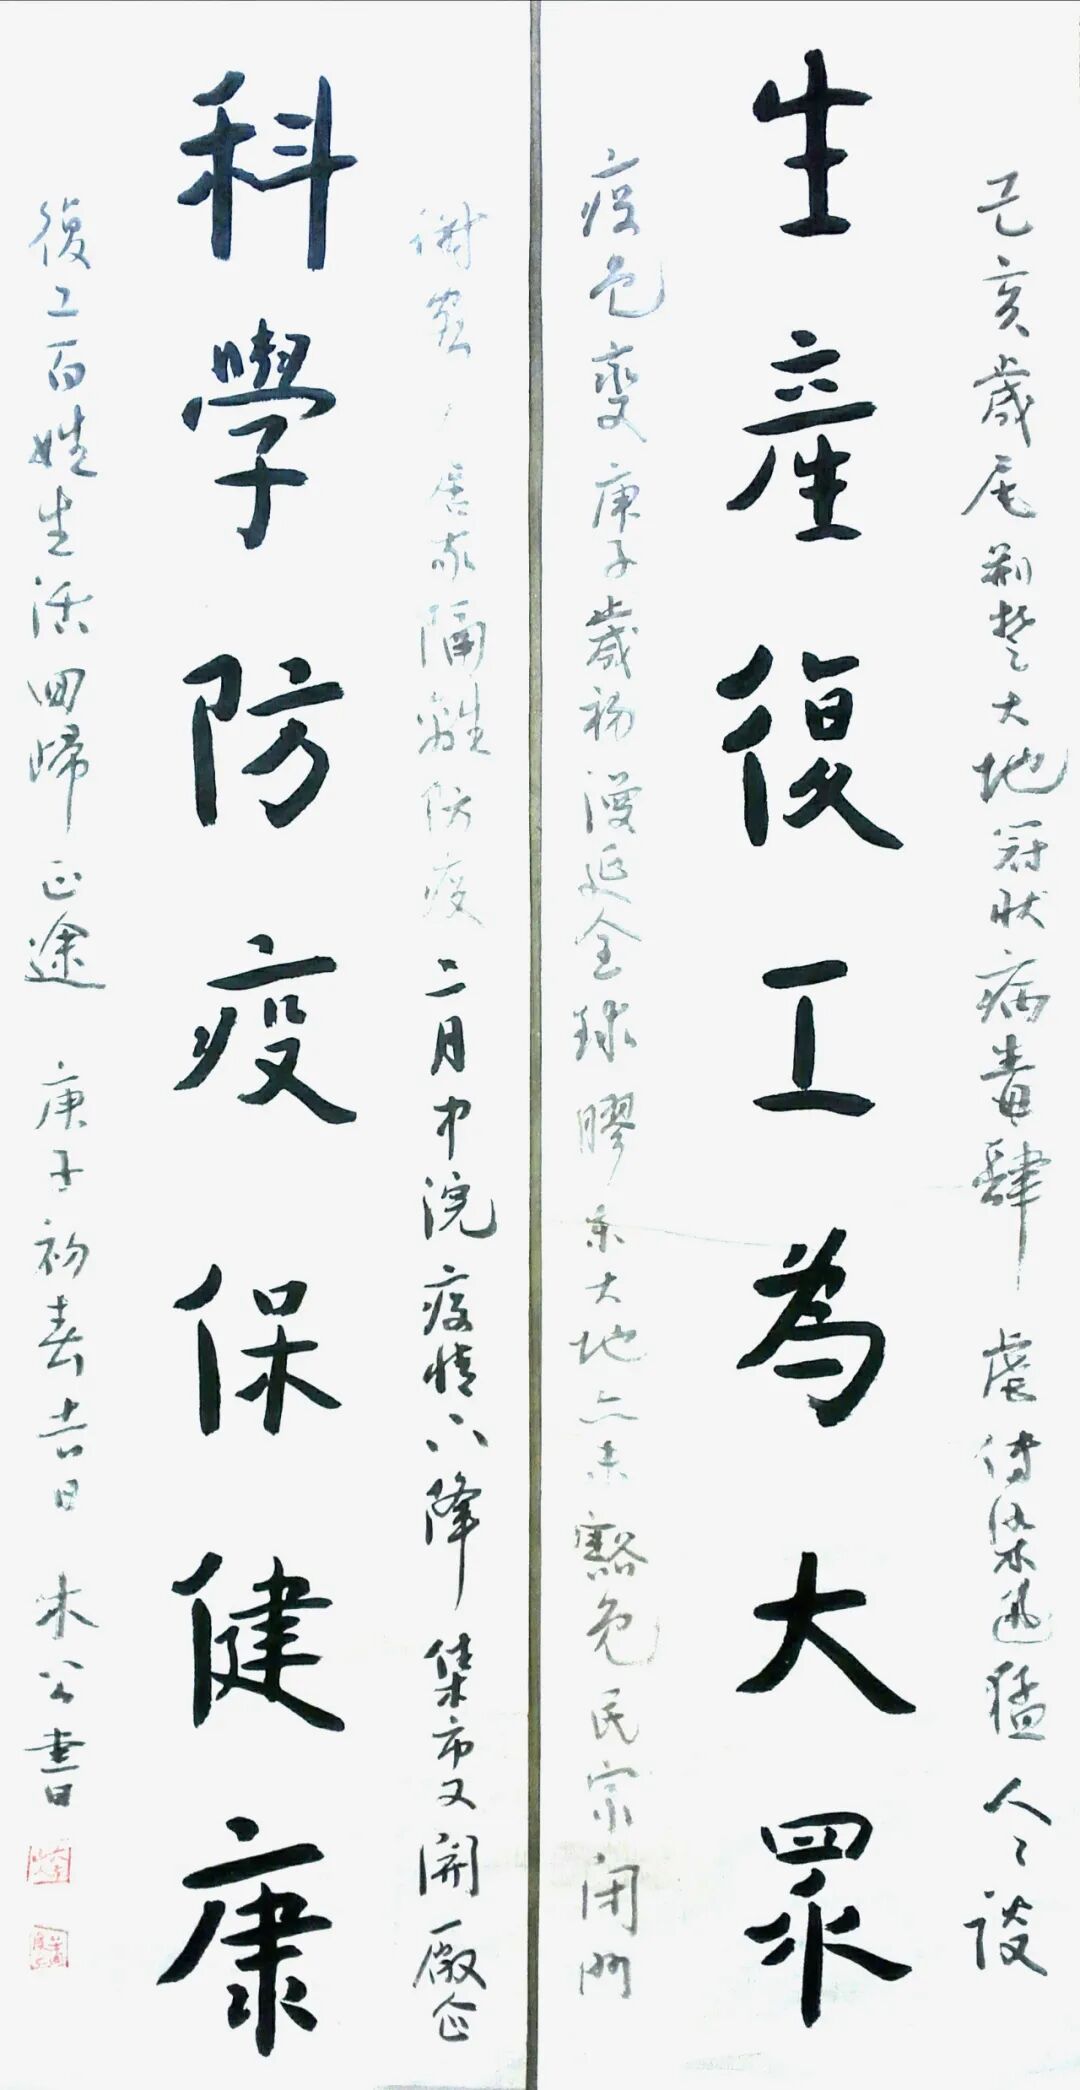 己亥歲尾荊楚大地冠狀病毒肆虐傳染迅猛人々談
生產復工為大眾
疫色變庚子歲初漫延全球膠東大地亦未豁免民宗閉門
居家隔離防疫二月中浣疫情下降集市又開廠企
科學防疫保健康
復工百姓生活回歸正途 庚子初春吉日 木公書